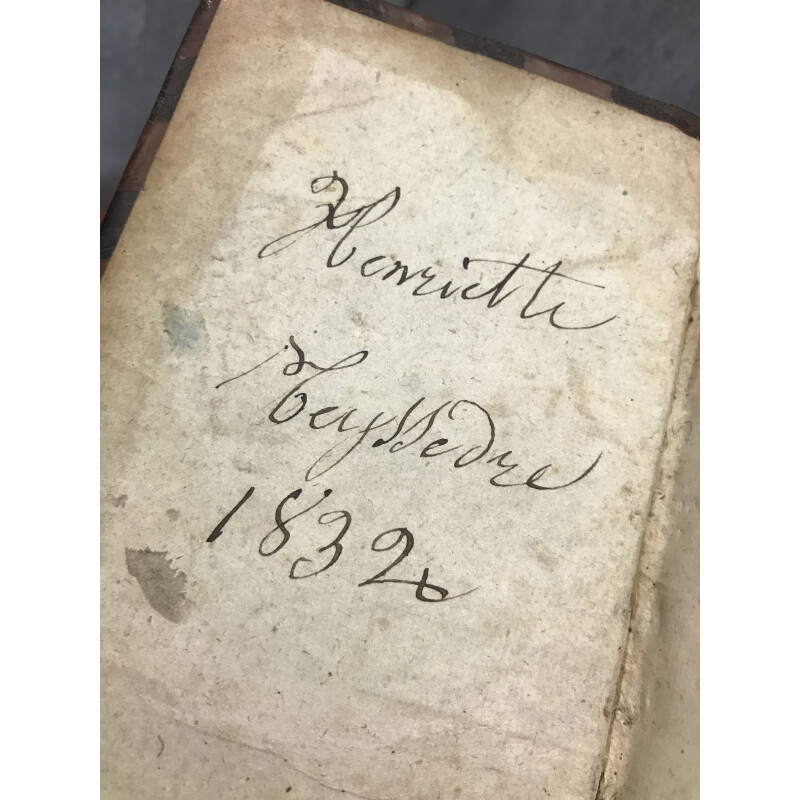 Henriette
Teyssedre
1832